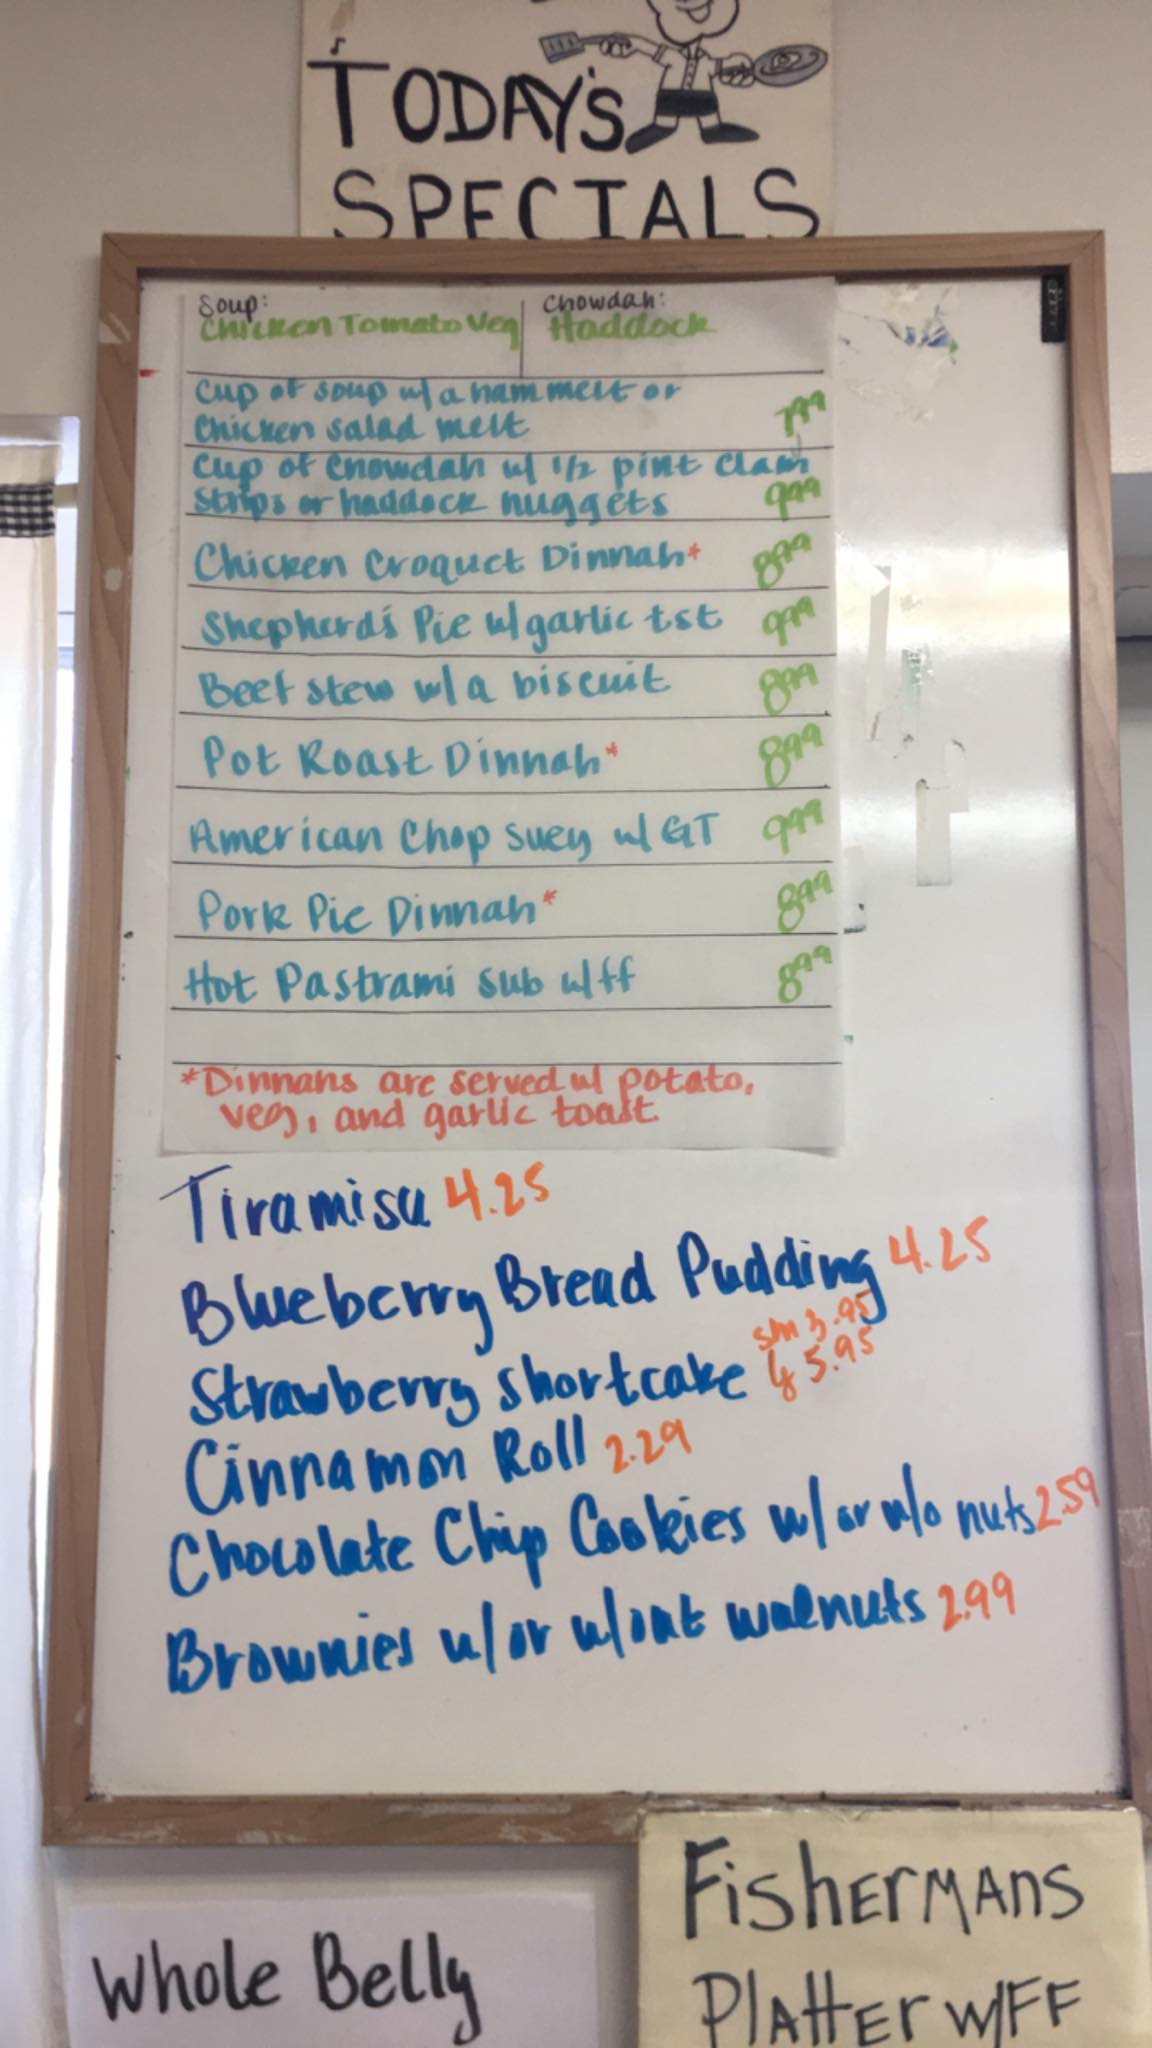 TODAY'S
SPECIALS
Soup:
Chicken Tomato Veg
Chowdah:
Haddock
Cup of soup w/ a ham melt or
Chicken salad melt 7.99
Cup of Chowdah w/ 1/2 pint Clam
Strips or haddock nuggets 999
Chicken Croquet Dinnah* 899
Shepherd's Pie w/garlic tst 999
Beef stew w/ a biscuit 899
Pot Roast Dinnah* 899
American Chop Suey w/ GT 999
Pork Pie Dinnah* 899
Hot Pastrami Sub w/ff 899
*Dinnahs are served w/ potato,
veg, and garlic toast
Tiramisu 4.25
Blueberry Bread Pudding 4.25
sm 3.95
Strawberry Shortcake lg 5.95
Cinnamon Roll 2.29
Chocolate Chip Cookies w/ or w/o nuts 2.59
Brownies w/ or w/out walnuts 2.99
Whole Belly
FishermAns
PlAttEr w/FF